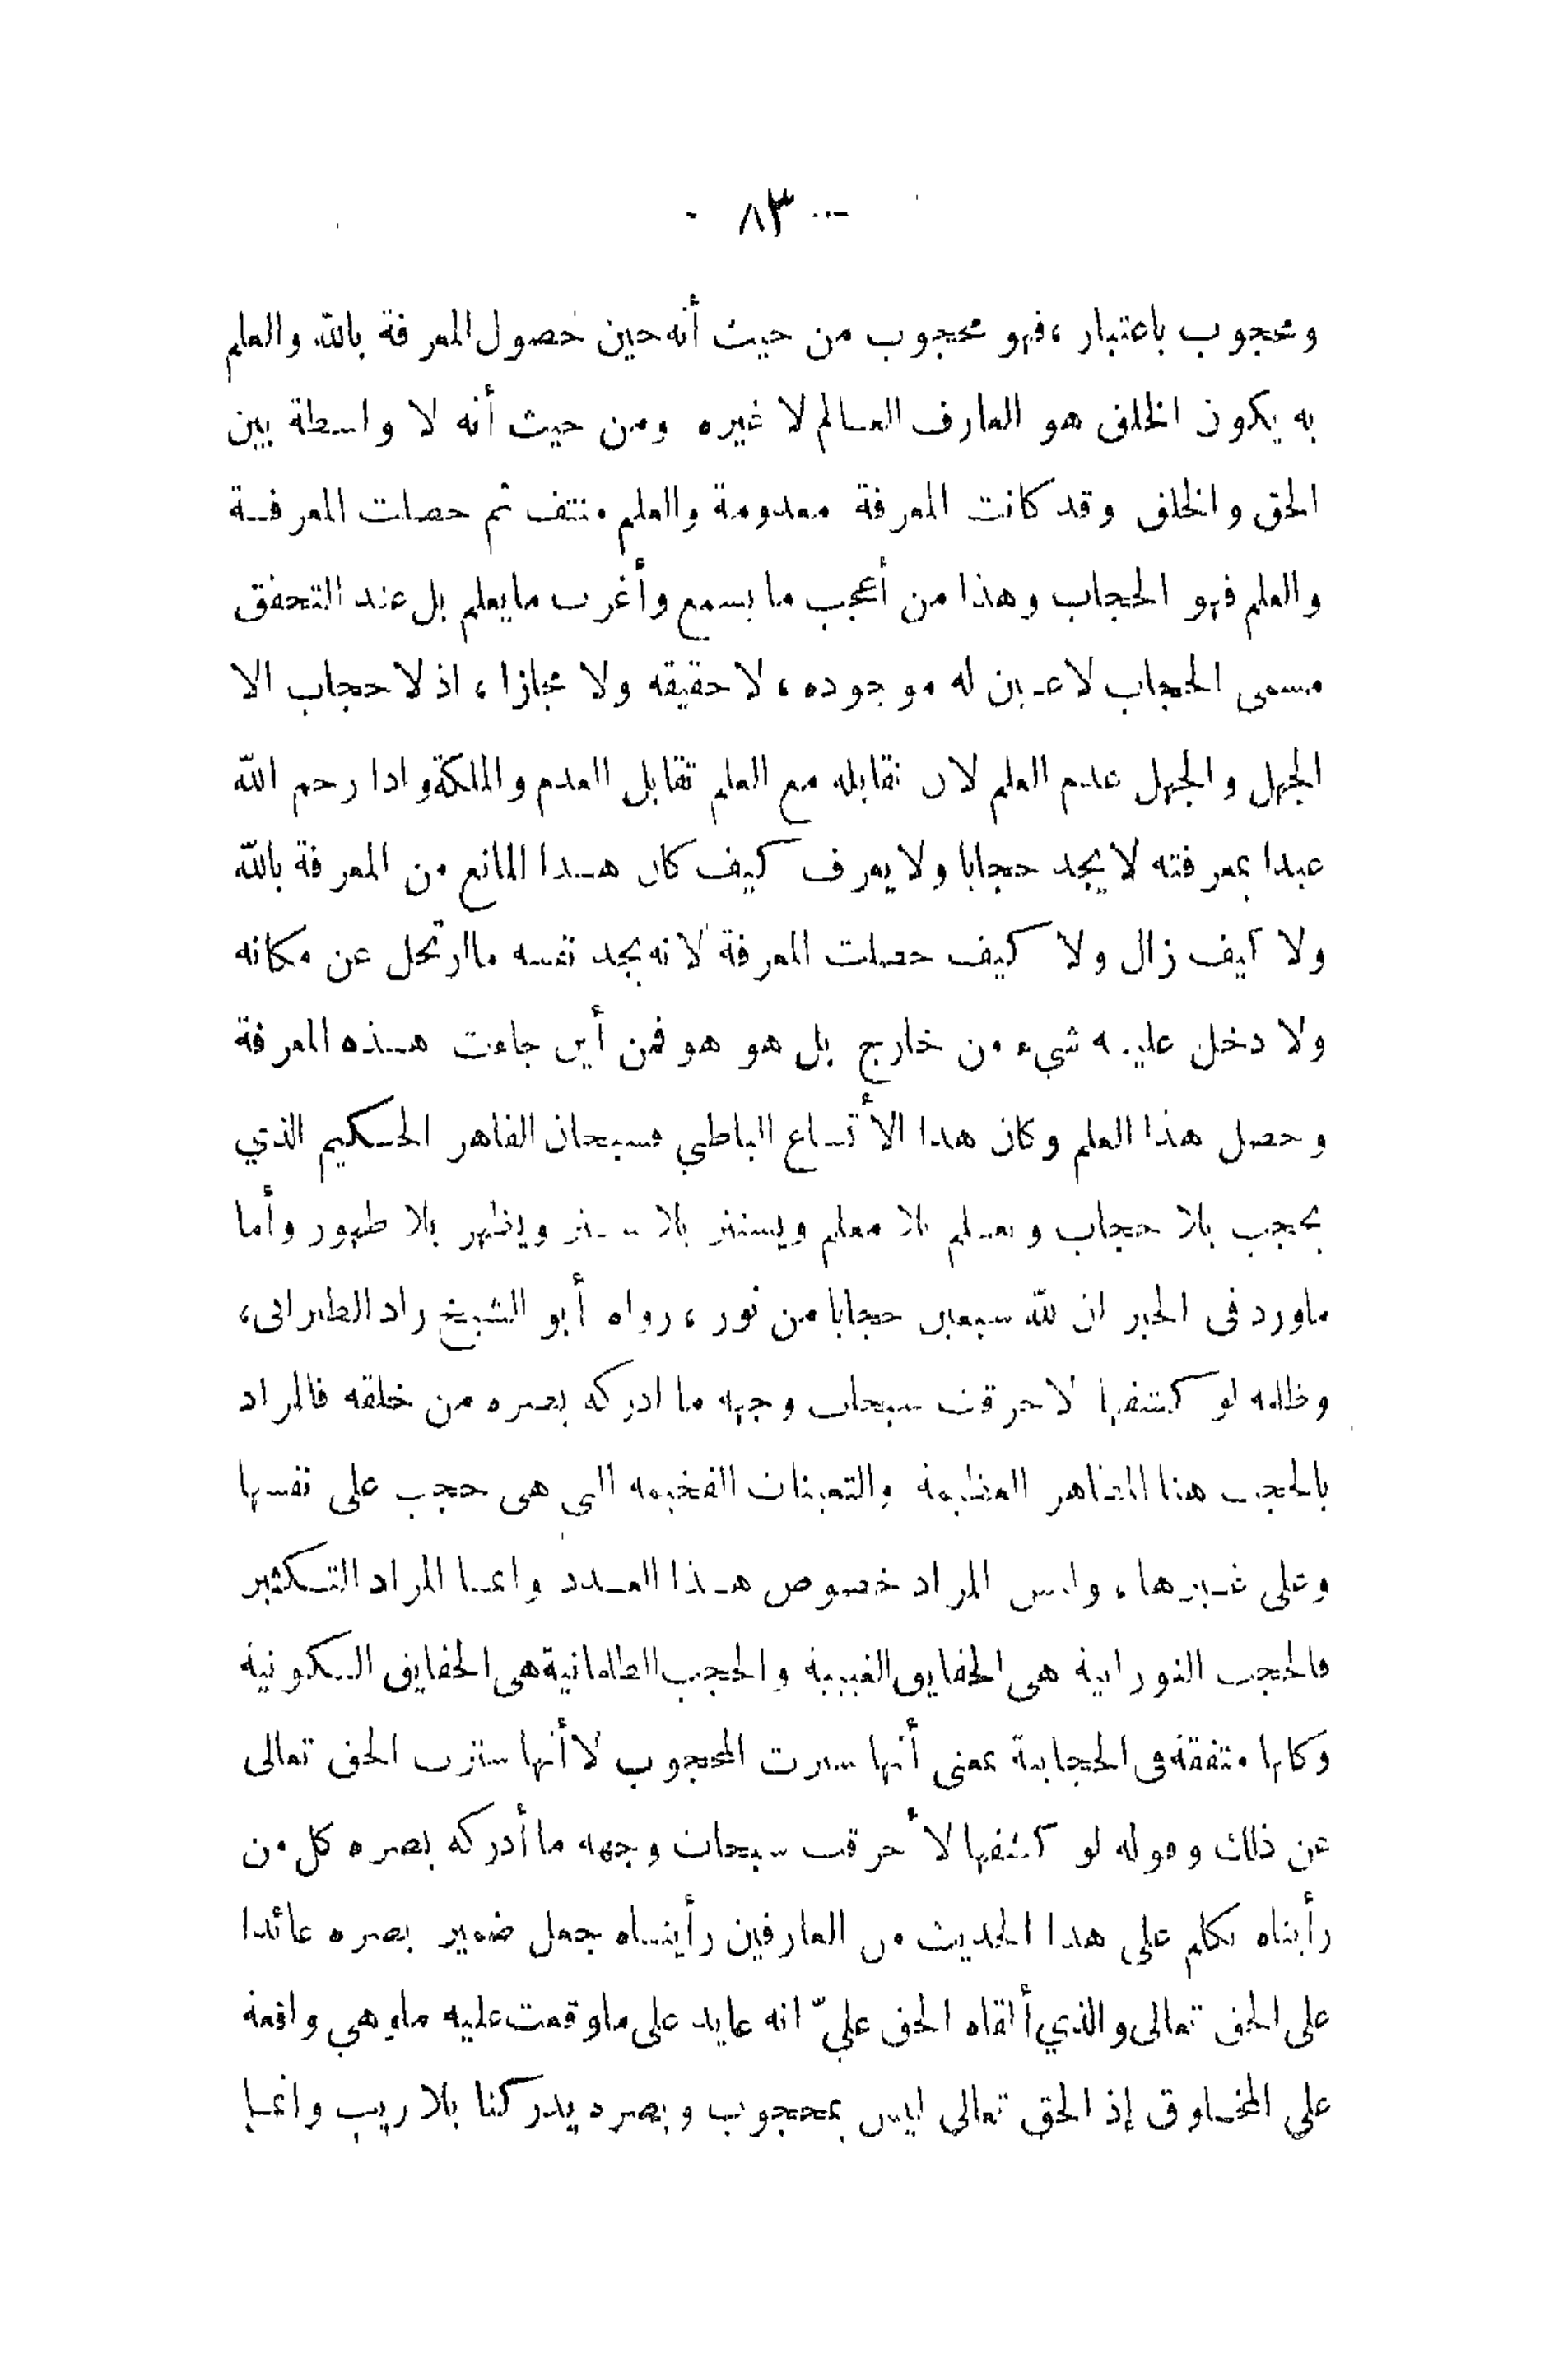 ٨٣
ومحجوب باعتبار ، فهو محجوب من حيث أنه حين حصول المعرفة بالله والعلم
به يكون الخلق هو العارف العالم لا غيره ومن حيث أنه لا واسطة بين
الحق والخلق وقد كانت المعرفة معدومة والعلم منتف ثم حصلت المعرفة
والعلم فهو الحجاب وهذا من أعجب ما يسمع وأغرب ما يعلم بل عند التحقق
مسمى الحجاب لا عين له موجوده ، لا حقيقه ولا مجازا ، اذ لا حجاب الا
الجهل والجهل عدم العلم لان تقابله مع العلم تقابل العدم والملكة واذا رحم الله
عبدا بمعرفته لا يجد حجابا ولا يعرف كيف كان هذا المانع من المعرفة بالله
ولا كيف زال ولا كيف حصلت المعرفة لانه يجد نفسه ما ارتحل عن مكانه
ولا دخل عليه شيء من خارج بل هو هو فمن أين جاءت هذه المعرفة
وحصل هذا العلم وكان هذا الأتساع الباطني فسبحان القاهر الحكيم الذي
يحجب بلا حجاب ويعلم بلا معلم ويستتر بلا ستر ويظهر بلا ظهور وأما
ماورد في الخبر ان لله سبعين حجابا من نور ، رواه أبو الشيخ زاد الطبرانى ،
وظلمه لو كشفها لاحرقت سبحات وجهه ما ادركه بصره من خلقه فالمراد
بالحجب هنا المظاهر العظيمة والتعينات الفخيمه التي هى حجب على نفسها
وعلى غيرها ، وليس المراد خصوص هذا العدد وانما المراد التكثير
فالحجب النورانية هى الحقايق الغيبية والحجب الظلمانية هى الحقايق الكونية
وكلها متفقة فى الحجابية بمعنى أنها سترت المحجوب لا أنها سترت الحق تعالى
عن ذلك وقوله لو كشفها لأحرقت سبحات وجهه ما أدركه بصره كل من
رأيناه تكلم على هذا الحديث من العارفين رأيناه جعل ضمير بصره عائدا
على الحق تعالى والذي ألقاه الحق عليّ انه عايد على ماوقعت عليه ما وهي واقعة
على المخلوق إذ الحق تعالى ليس بمحجوب وبصره يدركنا بلا ريب وانما